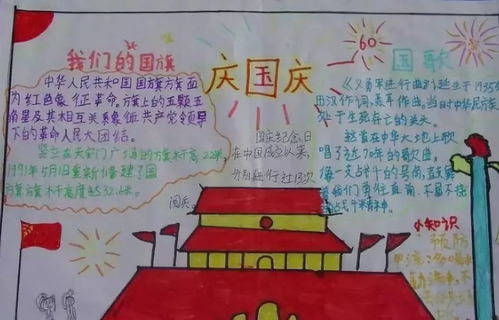 我们的国旗
中华人民共和国国旗旗面
为红色象征革命。旗上的五颗五
角星及其相互关系象征共产党领导
下的革命人民大团结。
竖立在天安门广场的旗杆高22米,
1991年5月1日重新修建了国
旗旗杆高度达32.6米。
庆国庆
国庆纪念日
在中国成立以来,
分别进行过13次
阅兵。
60
国歌
《义勇军进行曲》诞生于1935年
田汉作词,聂耳作曲。当时中华民族
处于生死存亡的关头。
这首在中华大地上歌
唱了近70年的歌曲,
像一支战斗的号角,
我们勇往直前、不屈不挠
小知识
预防